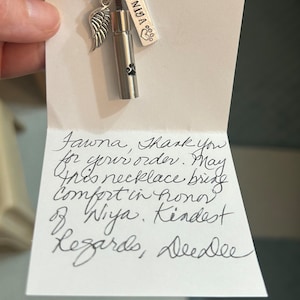 NIYA
Fawna, Thank you
for your order. May
this necklace bring
comfort in honor
of Niya. Kindest
Regards, DeeDee